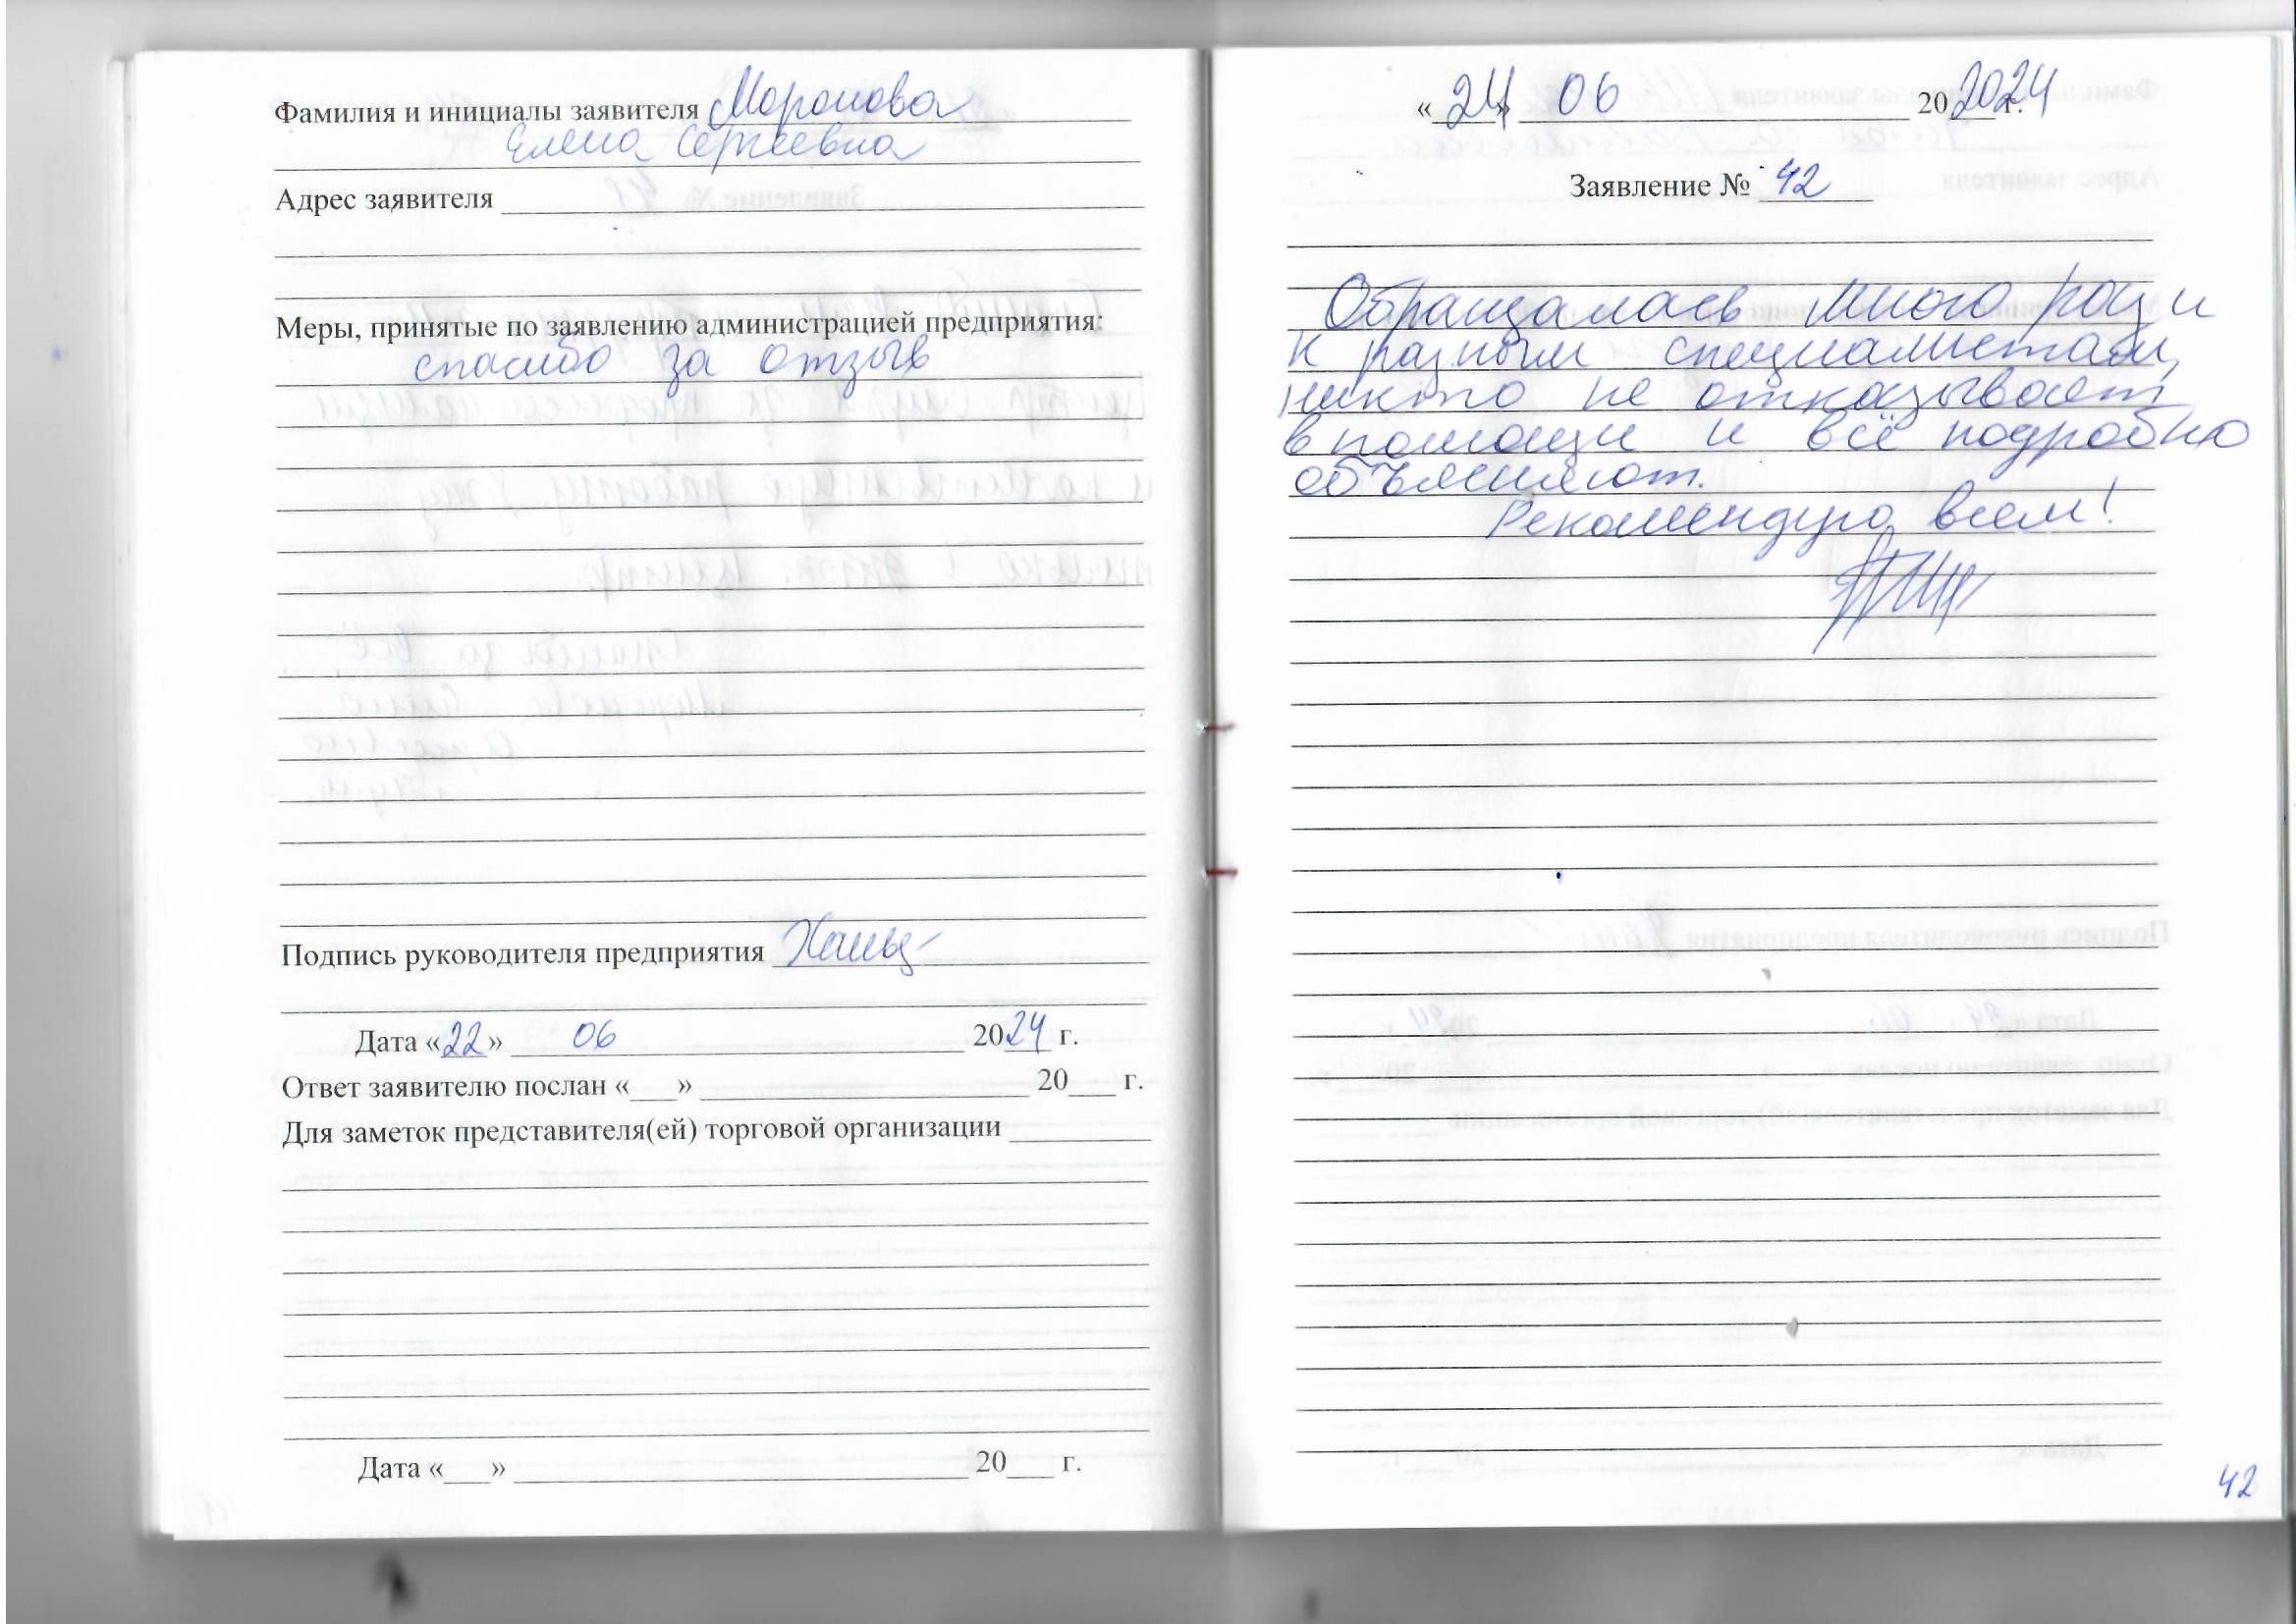 Фамилия и инициалы заявителя Моронова
Елена Сергеевна
Адрес заявителя
Меры, принятые по заявлению администрацией предприятия:
спасибо за отзыв
Подпись руководителя предприятия
Дата «22» 06 2024 г.
Ответ заявителю послан «___» 20___ г.
Для заметок представителя(ей) торговой организации
Дата «___» 20___ г.
«24» 06 20 2024 г.
Заявление № 42
Обращалась много раз и
к разным специалистам,
никто не отказывает
в помощи и всё подробно
объясняют.
Рекомендую всем!
42